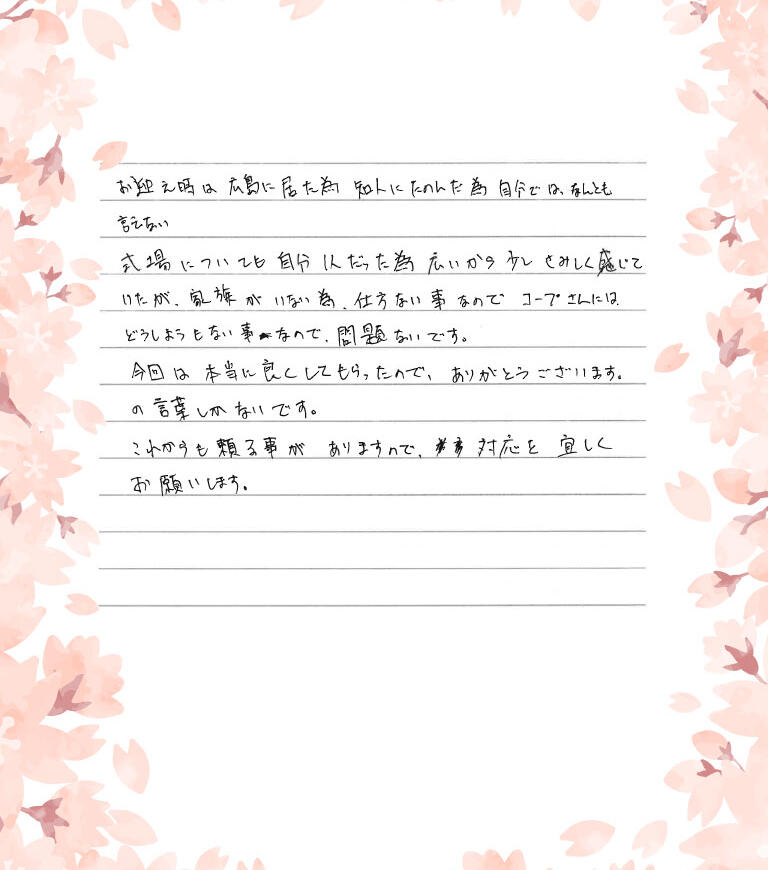 お迎え時は広島に居た為 知人にたのんだ為 自分では、なんとも
言えない
式場についても自分1人だった為 広いから少しさみしく感じて
いたが、家族がいない為、仕方ない事なので コープさんには
どうしようもない事なので、問題ないです。
今回は本当に良くしてもらったので、ありがとうございます。
の言葉しかないです。
これからも頼る事がありますので、対応を宜しく
お願いします。